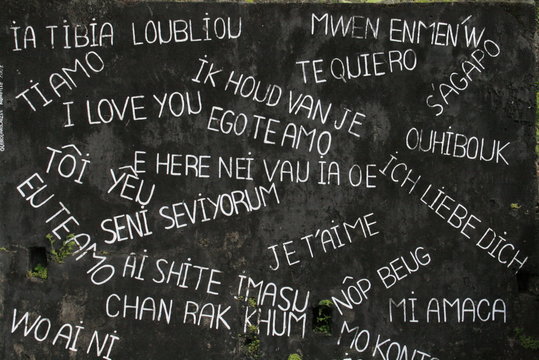 İA TİBİA LOUBLİOU
MWEN ENMEN'W
Tİ AMO
İK HOUD VAN JE
TE QUİERO
S'AGAPO
I LOVE YOU
EGO TE AMO
OUHİBOUK
TÔİ YÊU
E HERE NEİ VAU İA OE
İCH LİEBE DİCH
EU TE AMO
SENİ SEVİYORUM
JE T'AİME
Aİ SHİTE İMASU
NÔP BEUG
CHAN RAK KHUM
Mİ AMACA
WO Aİ Nİ
MO